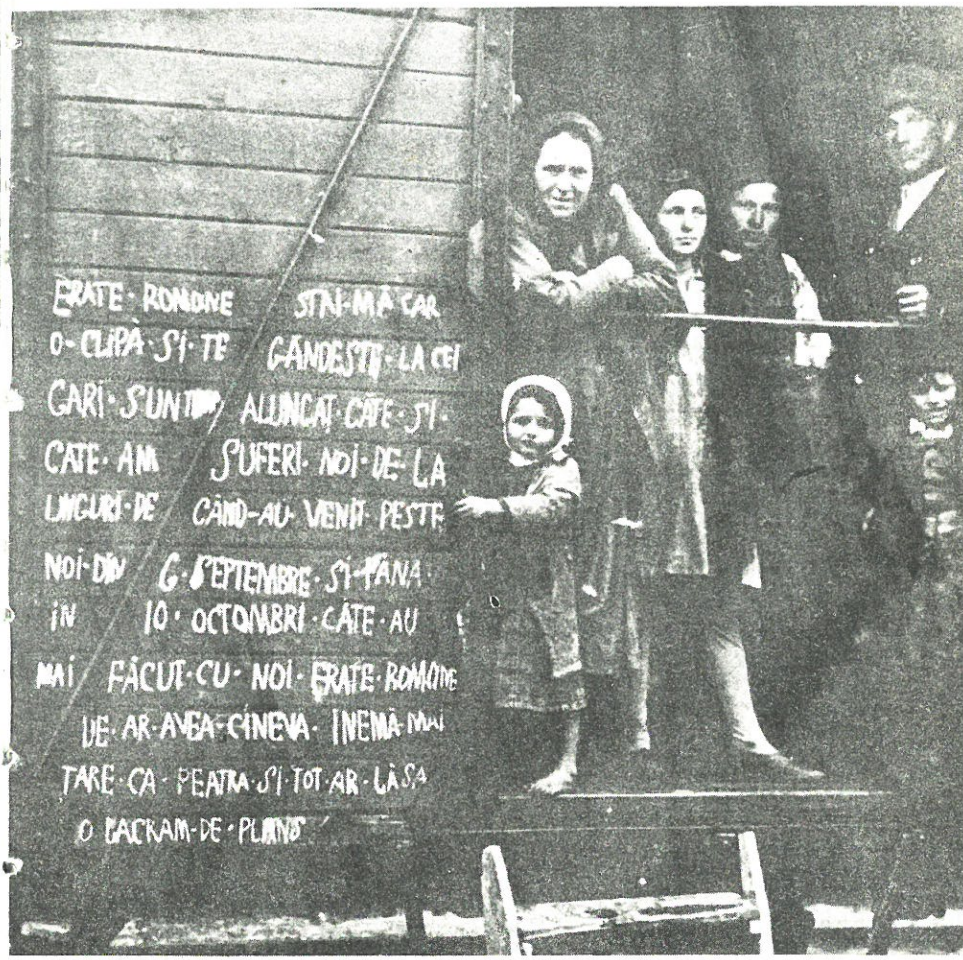 FRATE·ROMÎNE STAI·MĂCAR
O·CLIPĂ·SI·TE GÂNDEȘTI·LA CEI
CARI·SUNTEM ALUNCAT·CATE·SI·
CATE·AM SUFERI·NOI·DE·LA
UNGURI·DE CÂND-AU·VENIT·PESTE
NOI·DIN 6·SEPTEMBRE·SI·PÂNA·
IN 10·OCTOMBRI·CÂTE·AU
MAI FĂCUT·CU·NOI·FRATE·ROMÎNE
DE·AR·AVEA·CINEVA·INEMĂ·MAI
TARE·CA·PEATRA·SI·TOT·AR·LĂSA
O LACRAM·DE·PLANS